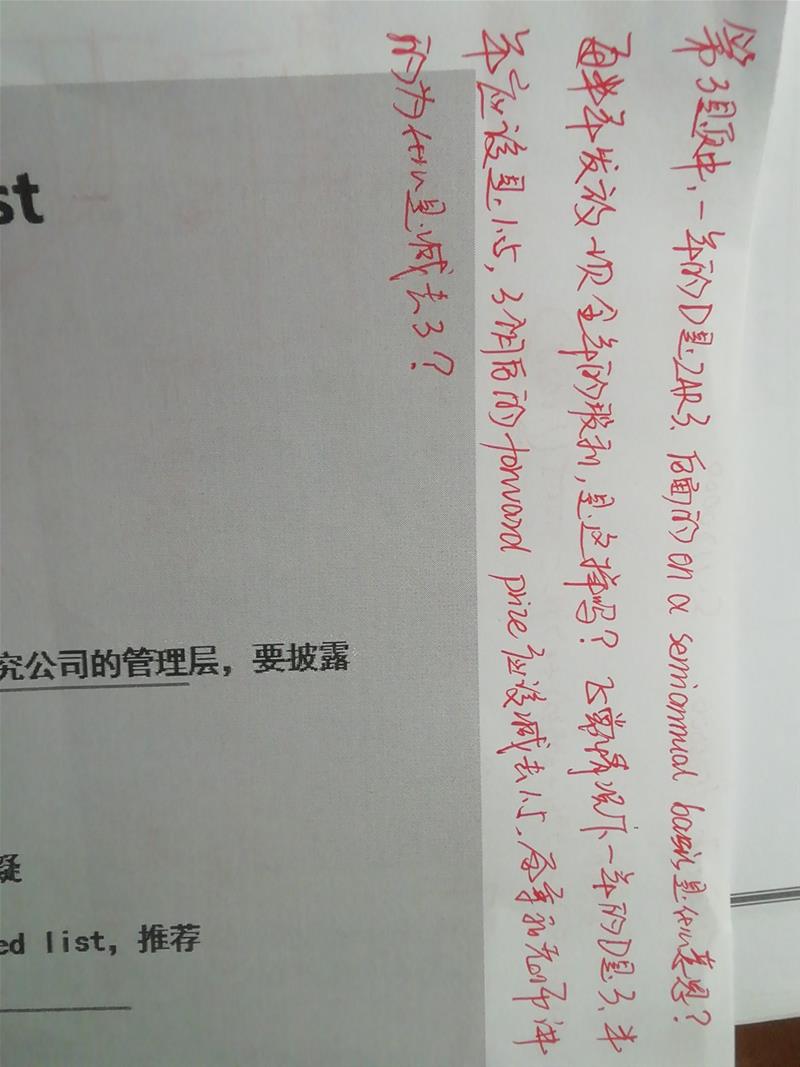 第3题中,一年的D是ZAR3、后面的on a semiannual basis是什么意思?
每半年发放一次全年的股利,是这样吗?正常情况下一年的D是3、半
年应该是1.5,3个月后的forward prize应该减去1.5、答案和老师讲
的为什么是减去3?
st
究公司的管理层,要披露
疑
ed list,推荐